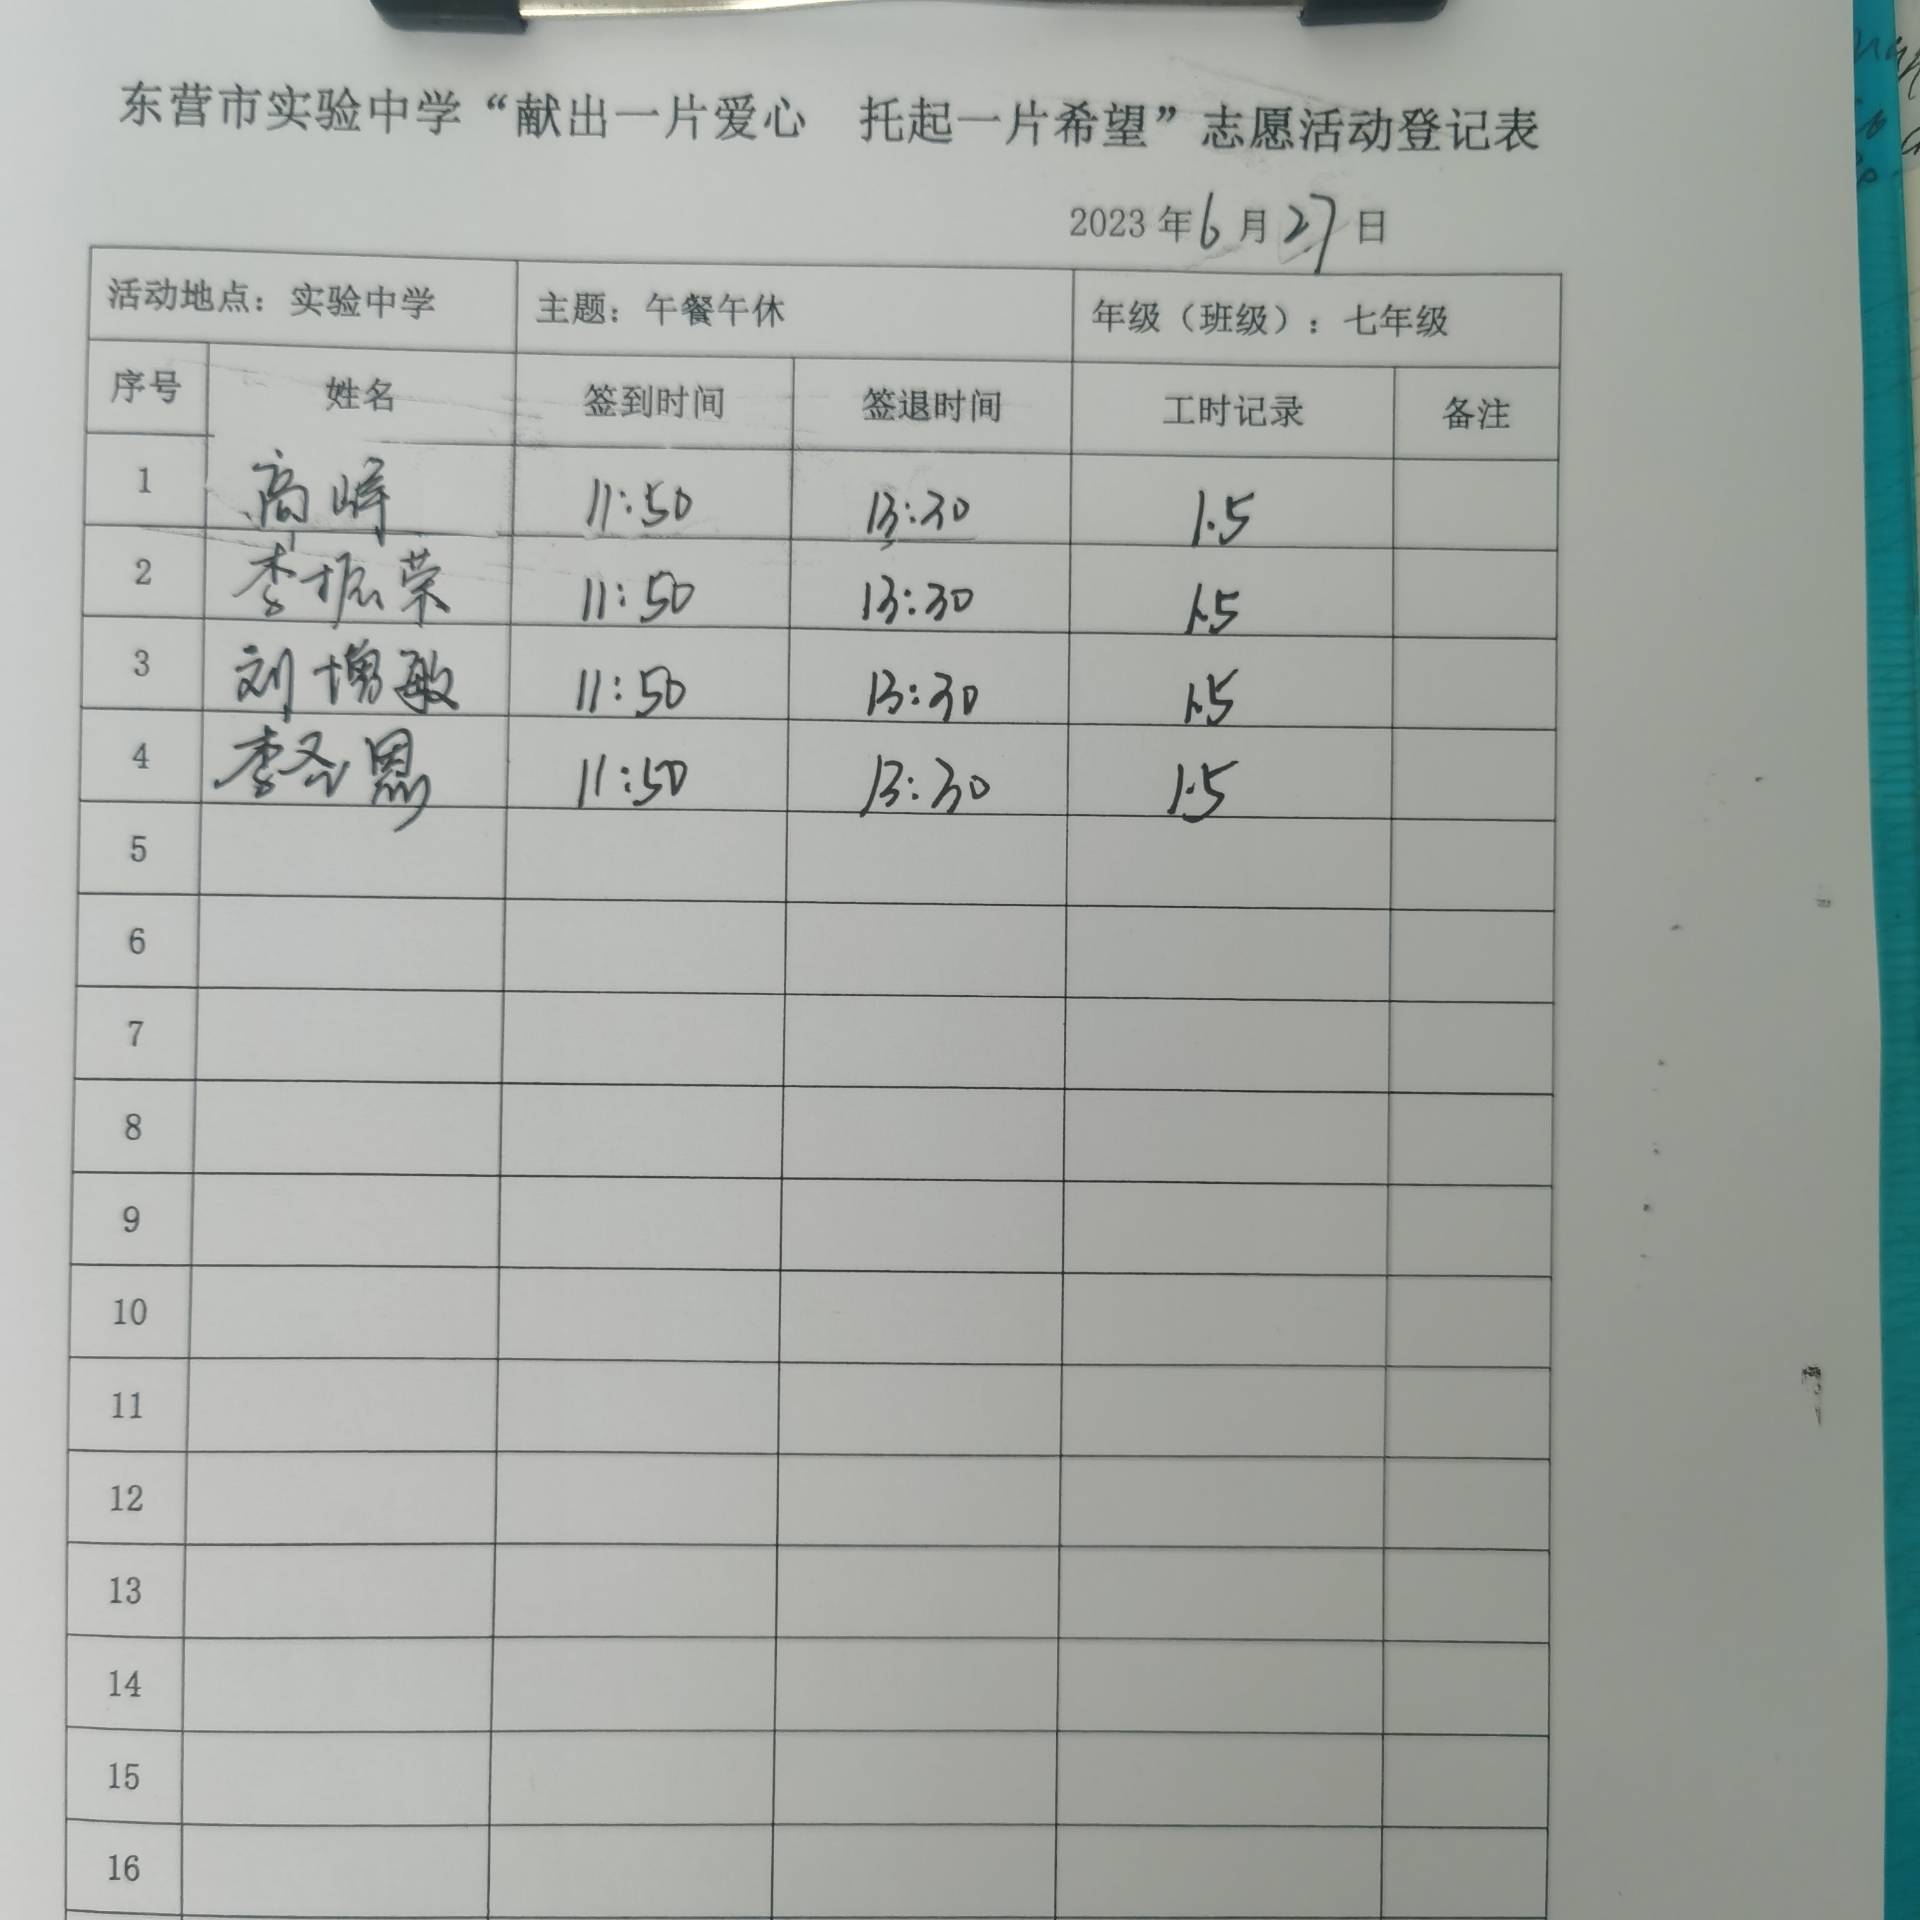 东营市实验中学“献出一片爱心 托起一片希望”志愿活动登记表
2023年6月27日
活动地点：实验中学 主题：午餐午休 年级（班级）：七年级
序号 姓名 签到时间 签退时间 工时记录 备注
1 高峰 11:50 13:30 1.5
2 李振荣 11:50 13:30 1.5
3 刘增敏 11:50 13:30 1.5
4 李圣恩 11:50 13:30 1.5
5
6
7
8
9
10
11
12
13
14
15
16